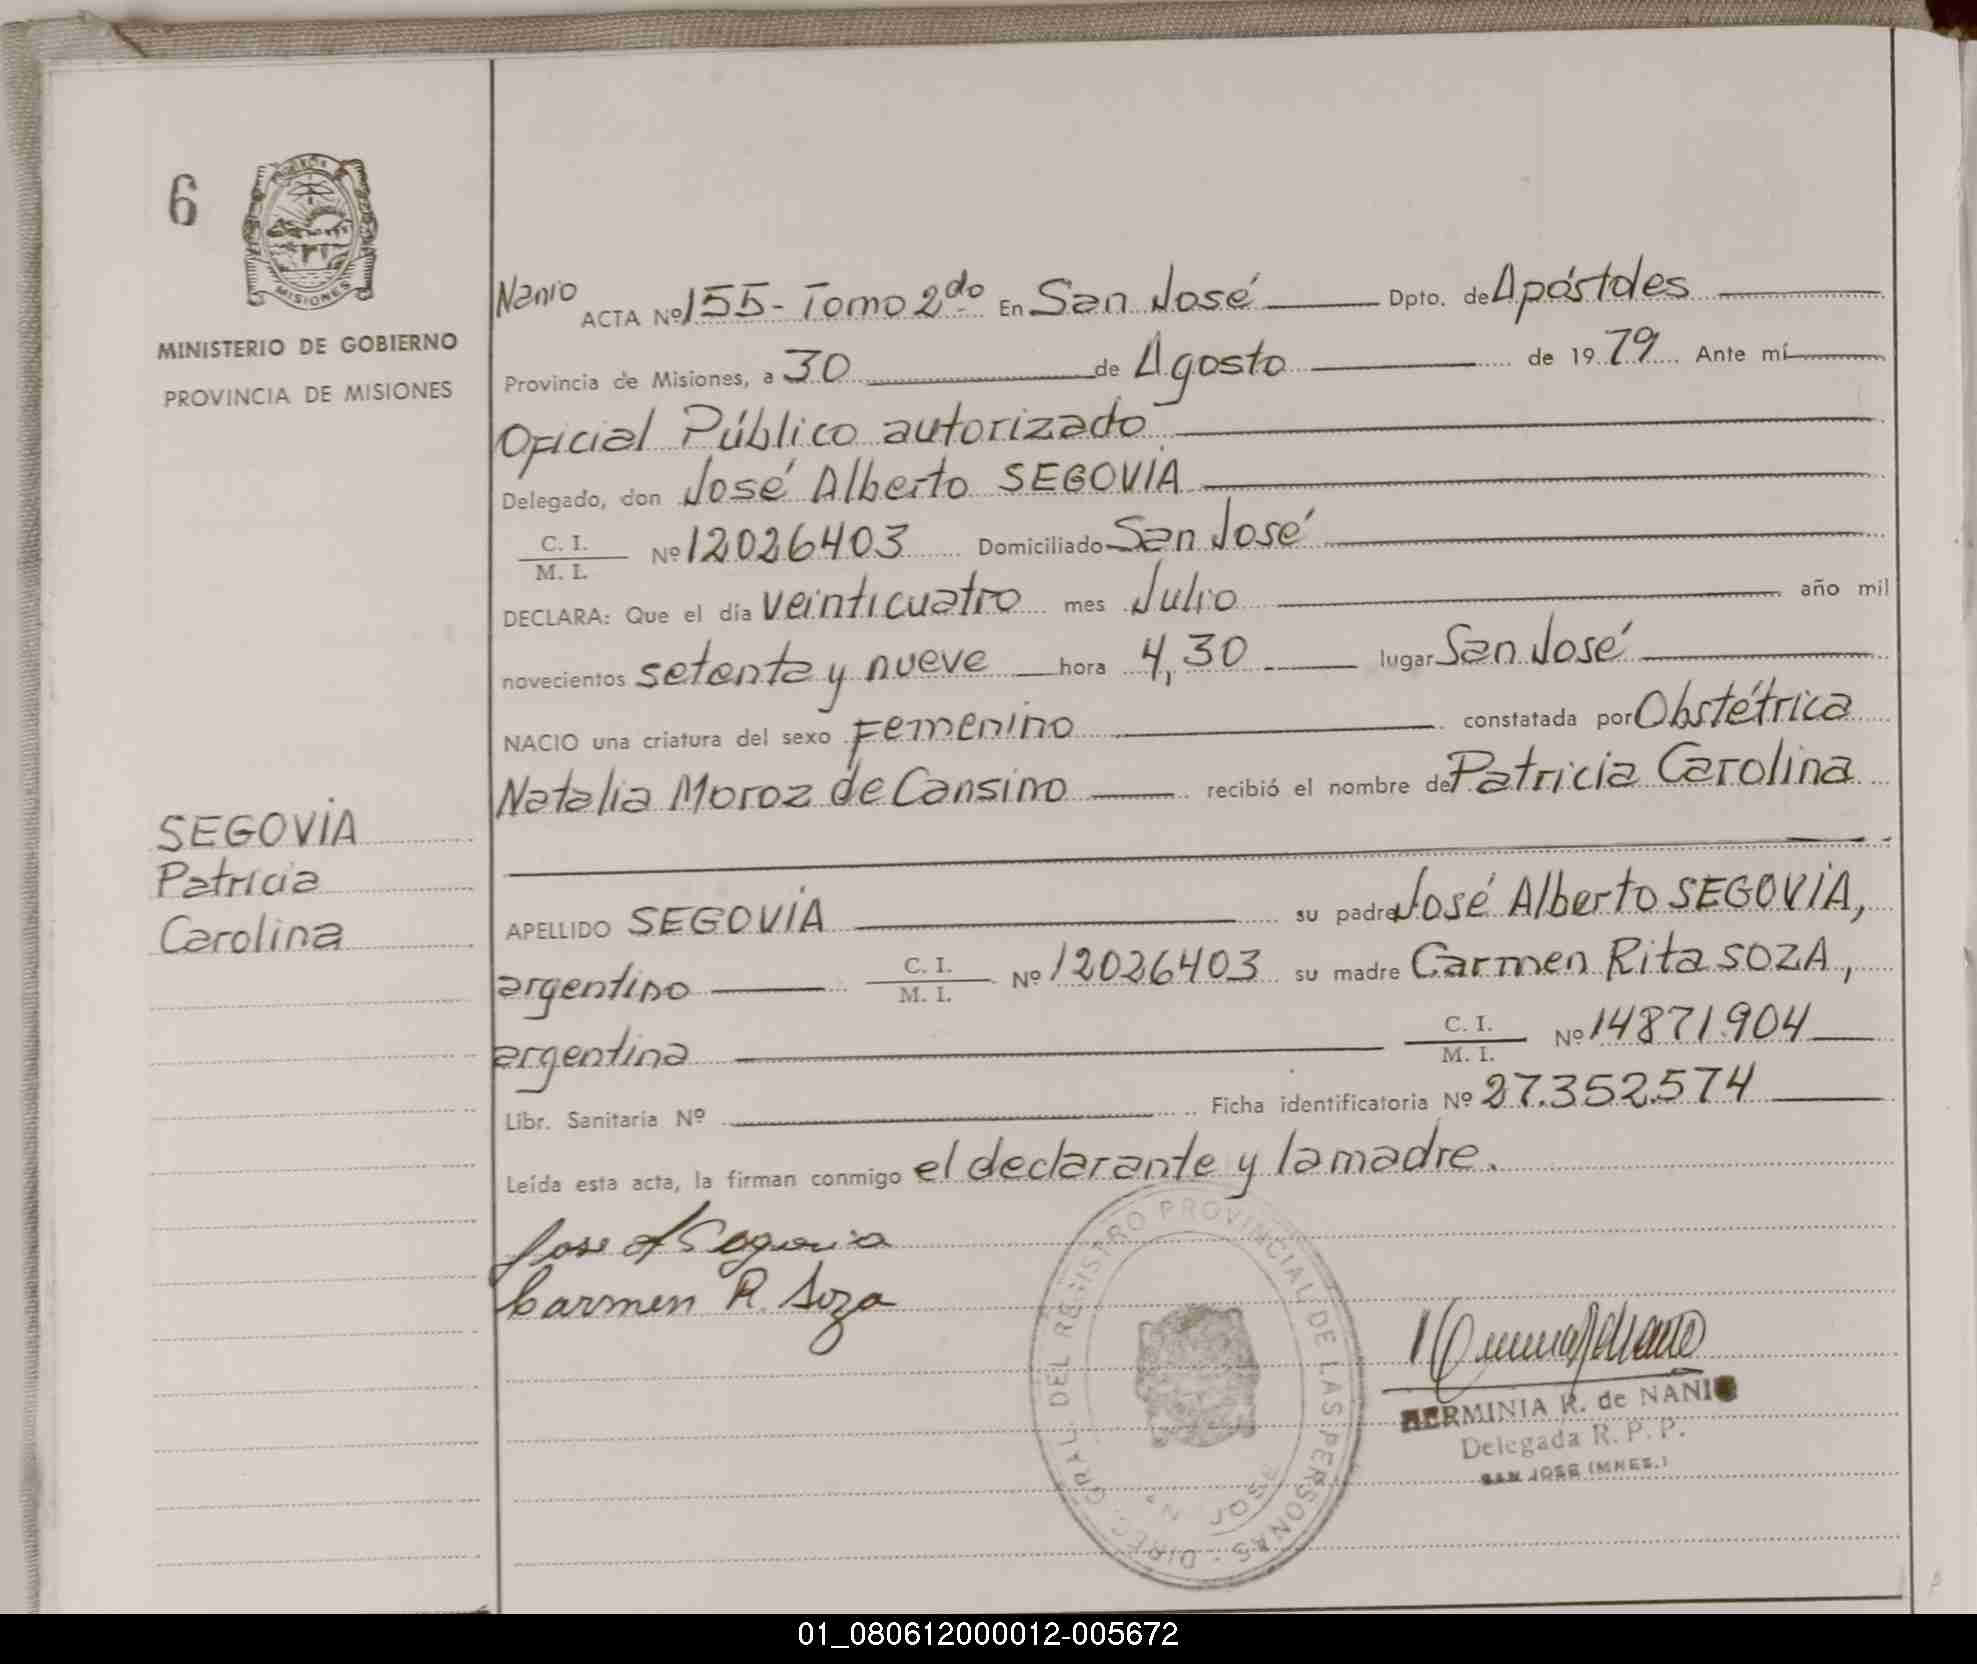 6
MISIONES
MINISTERIO DE GOBIERNO
PROVINCIA DE MISIONES
SEGOVIA
Patricia
Carolina
Nanio ACTA Nº 155 - Tomo 2do En San José Dpto. de Apóstoles
Provincia de Misiones, a 30 de Agosto de 1979 Ante mí
Oficial Público autorizado
Delegado, don José Alberto SEGOVIA
C. I. / M. I. Nº 12026403 Domiciliado San José
DECLARA: Que el día veinticuatro mes Julio año mil
novecientos setenta y nueve hora 4,30 lugar San José
NACIO una criatura del sexo Femenino constatada por Obstétrica
Natalia Moroz de Cansino recibió el nombre de Patricia Carolina
APELLIDO SEGOVIA su padre José Alberto SEGOVIA,
argentino C. I. / M. I. Nº 12026403 su madre Carmen Rita SOZA,
argentina C. I. / M. I. Nº 14871.904
Libr. Sanitaria Nº Ficha identificatoria Nº 27.352.574
Leída esta acta, la firman conmigo el declarante y la madre.
Jose A Segovia
Carmen R. Soza
DIREC. GRAL. DEL REGISTRO PROVINCIAL DE LAS PERSONAS
JOSE
HERMINIA R. de NANIO
Delegada R. P. P.
SAN JOSE (MNES.)
01_080612000012-005672